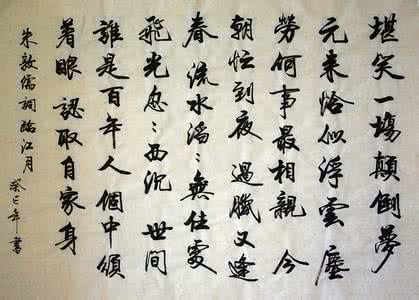 堪笑一場顛倒夢
元来恰似浮雲塵
勞何事最相親 今
朝忙到夜 過臘又逢
春 流水滔〻無住處
飛光忽〻西沉 世間
誰是百年人個中須
着眼 認取自家身
朱敦儒詞臨江月 癸巳年書